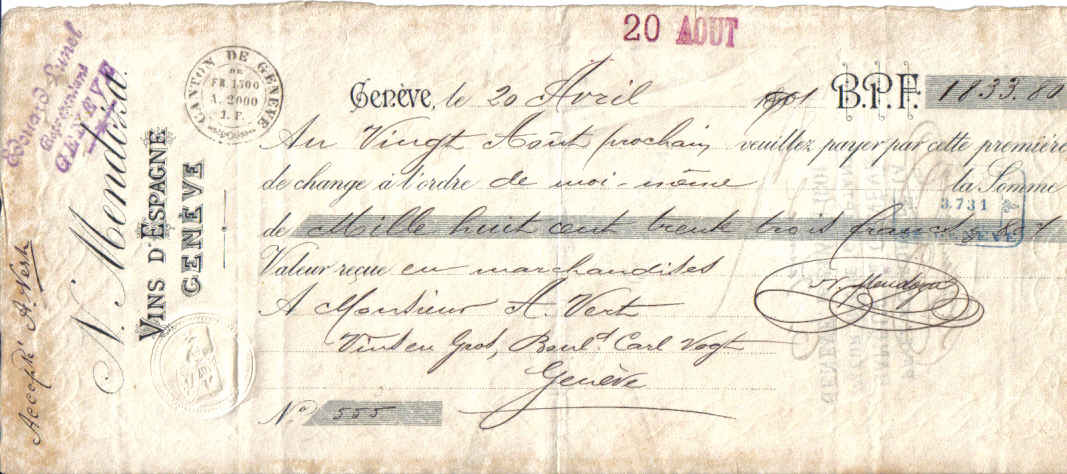 20 AOUT
Edouard Lunel
GENÈVE
N. Mendoza.
VINS D'ESPAGNE
GENÈVE
CANTON DE GENÈVE
DE
FR. 1500
A. 2000
1. F.
Accepté A. Vert
Genève, le 20 Avril 1901 B.P.F. 1833.80
Au Vingt Août prochain veuillez payer par cette première
de change à l'ordre de moi-même la Somme
3.731
de Mille huit cent trente trois francs 80%
Valeur reçue en marchandises
N. Mendoza
A Monsieur A. Vert
Vins en Gros, Boul.d Carl Vogt
Genève
No. 555